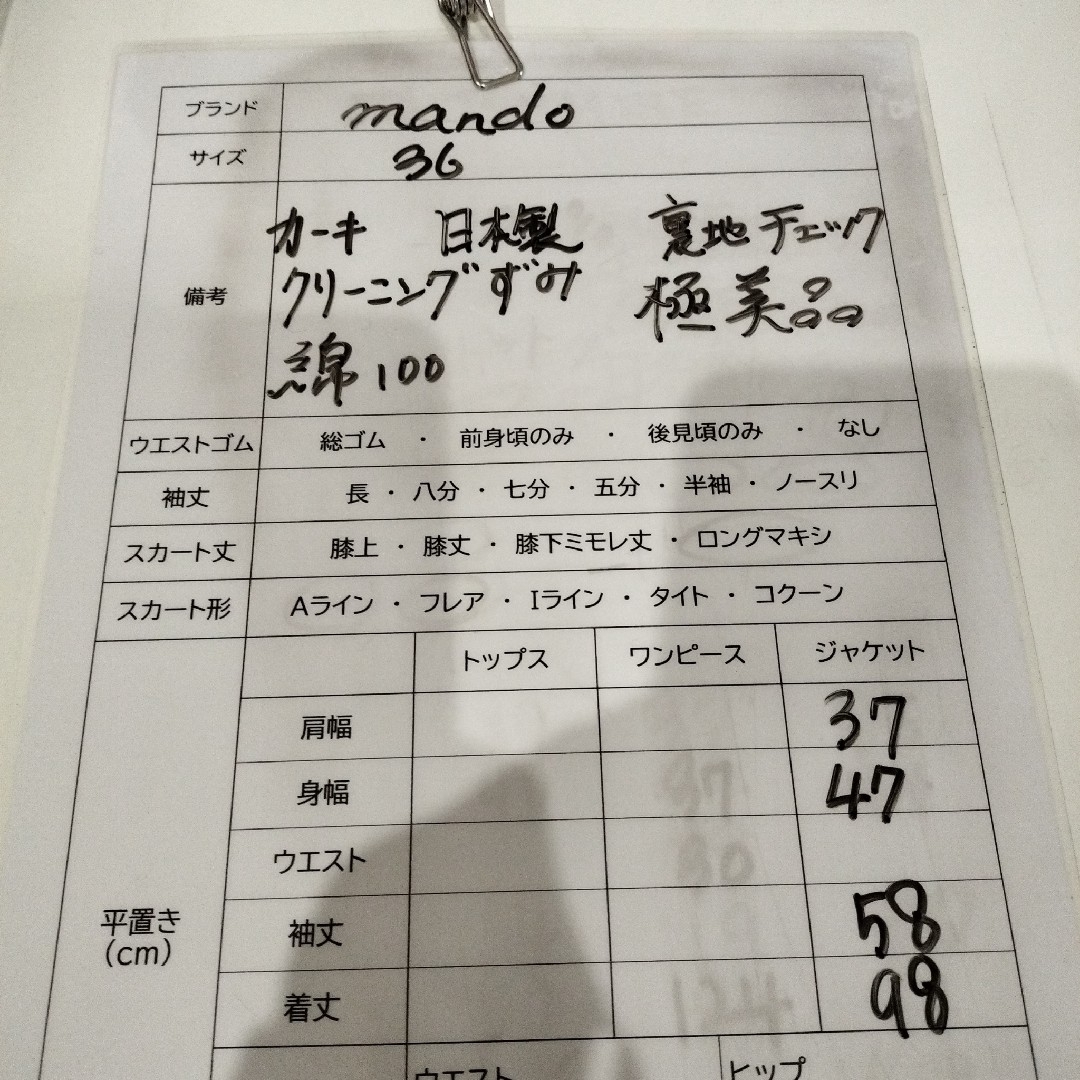 ブランド mando
サイズ 36
備考 カーキ 日本製 裏地チェック
クリーニングずみ 極美品
綿100
ウエストゴム 総ゴム ・ 前身頃のみ ・ 後見頃のみ ・ なし
袖丈 長 ・ 八分 ・ 七分 ・ 五分 ・ 半袖 ・ ノースリ
スカート丈 膝上 ・ 膝丈 ・ 膝下ミモレ丈 ・ ロングマキシ
スカート形 Aライン ・ フレア ・ Iライン ・ タイト ・ コクーン
平置き
(cm)
トップス ワンピース ジャケット
肩幅 37
身幅 47
ウエスト
袖丈 58
着丈 98
ウエスト ヒップ